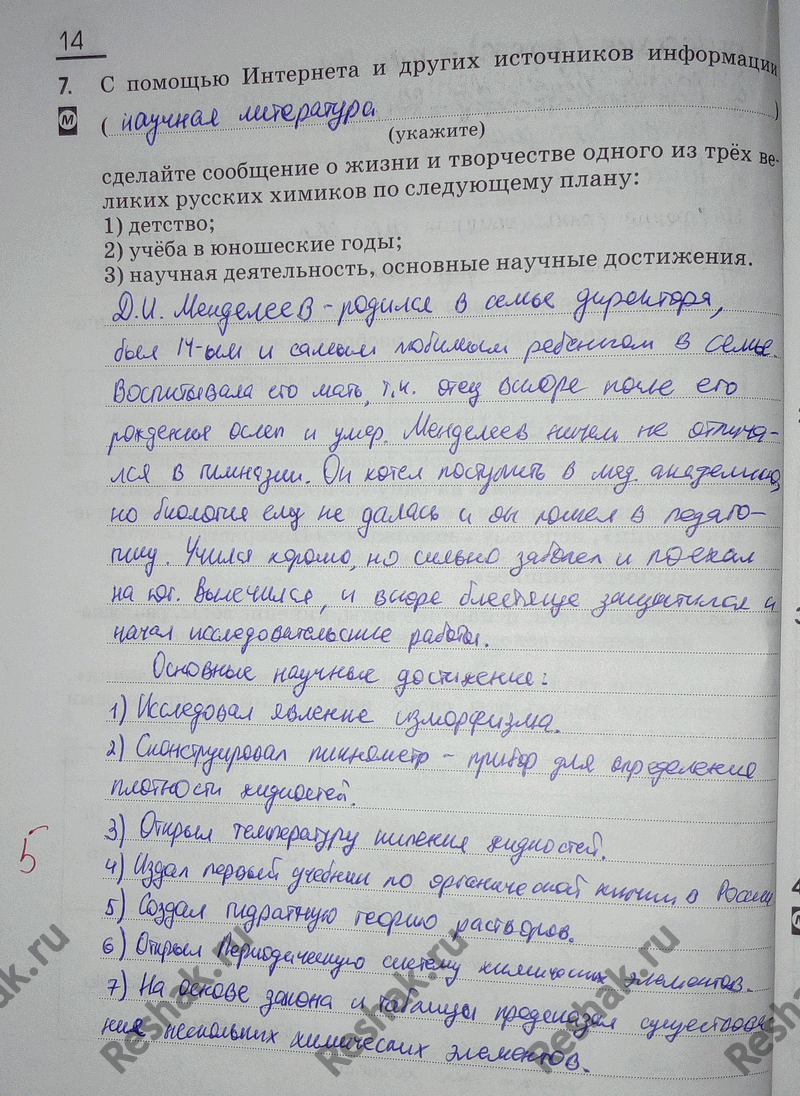 14
7. С помощью Интернета и других источников информации
М
( научная литература )
(укажите)
сделайте сообщение о жизни и творчестве одного из трёх ве-
ликих русских химиков по следующему плану:
1) детство;
2) учёба в юношеские годы;
3) научная деятельность, основные научные достижения.
Д.И. Менделеев - родился в семье директора,
был 14-ым и самым любимым ребёнком в семье.
Воспитывала его мать, т.к. отец вскоре после его
рождения ослеп и умер. Менделеев ничем не отлича-
лся в гимназии. Он хотел поступить в мед. академию,
но биология ему не далась и он пошел в педаго-
гику. Учился хорошо, но сильно заболел и поехал
на юг. Вылечился, и вскоре блестяще защитился и
начал исследовательские работы.
Основные научные достижения:
1) Исследовал явление изморфизма.
2) Сконструировал пикнометр - прибор для определения
плотности жидкостей.
3) Открыл температуру кипения жидкостей.
4) Издал первый учебник по органической химии в России
5) Создал гидратную теорию растворов.
6) Открыл Периодическую систему химических элементов.
7) На основе закона и таблицы предсказал существова-
ние нескольких химических элементов.
5
Reshak.ru
Reshak.ru
Reshak.ru
Reshak.ru